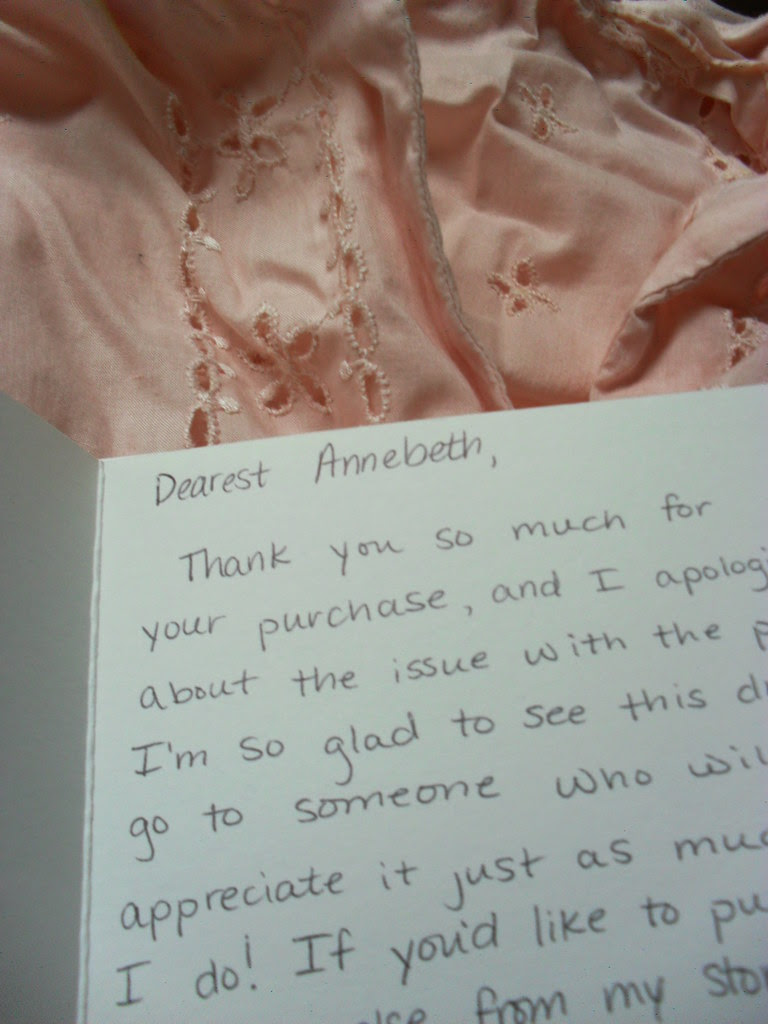 Dearest Annebeth,
Thank you so much for
your purchase, and I apologi
about the issue with the p
I'm so glad to see this d
go to someone who wil
appreciate it just as muc
I do! If you'd like to pu
from my stor